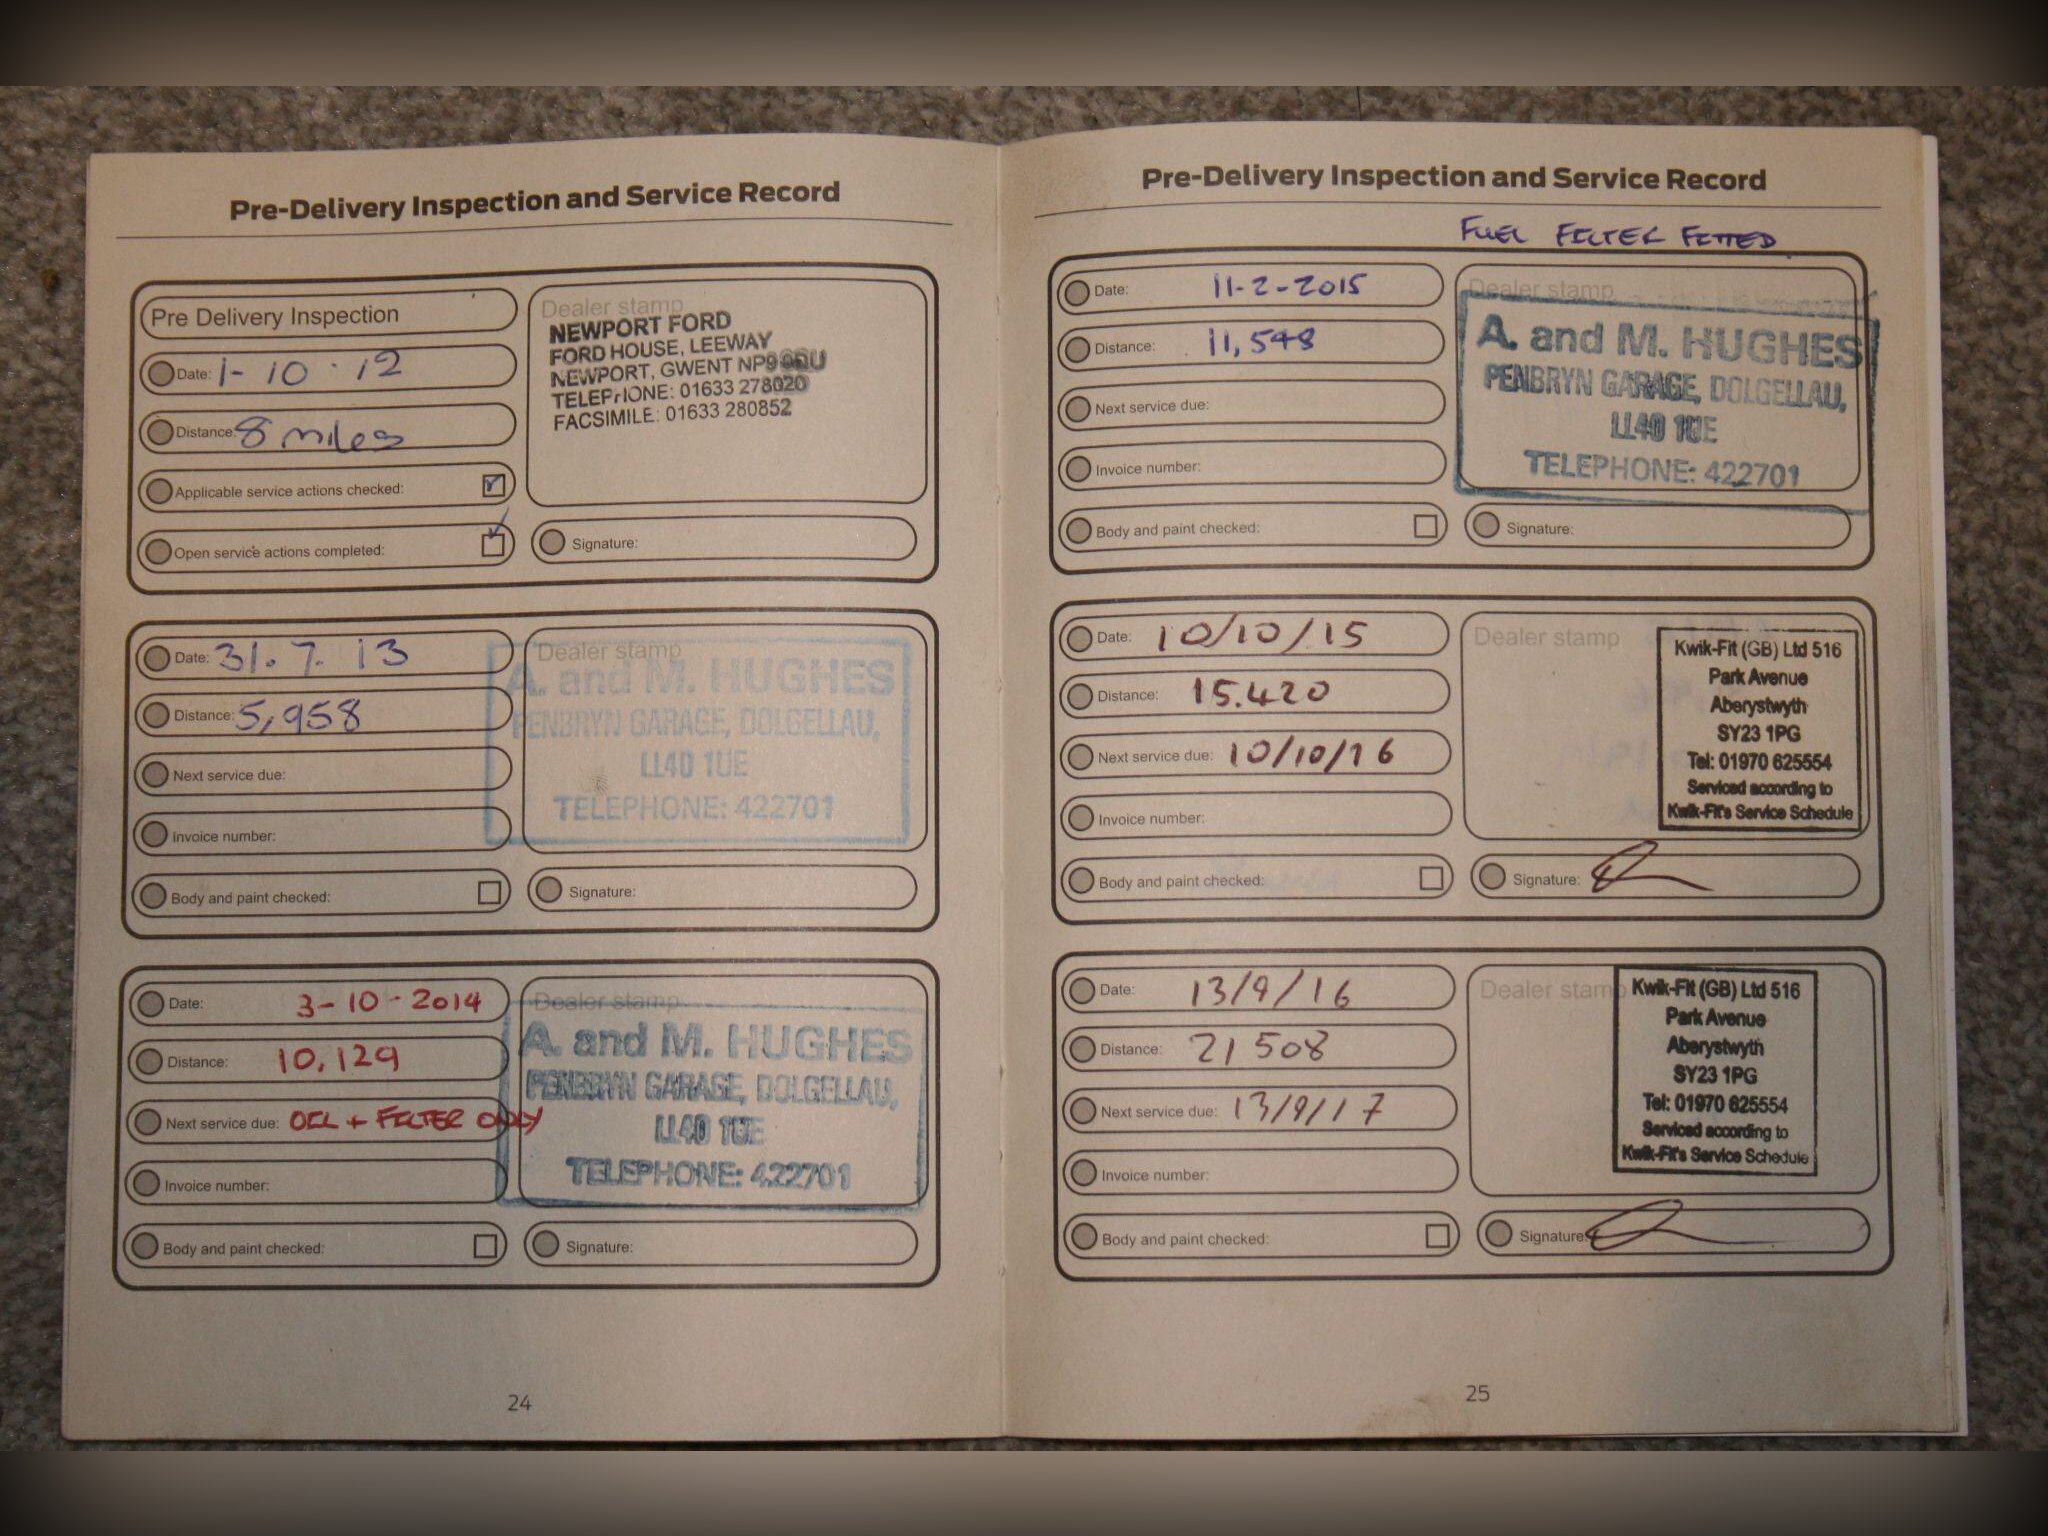 Pre-Delivery Inspection and Service Record
Pre Delivery Inspection
Date: 1-10.12
Distance: 8 miles
Applicable service actions checked:
Open service actions completed:
Dealer stamp
NEWPORT FORD
FORD HOUSE, LEEWAY
NEWPORT, GWENT
TELEPHONE: 01633 278020
FACSIMILE: 01633 280852
Signature:
Date: 31.7.13
Distance: 5,958
Next service due:
Invoice number:
Body and paint checked:
Dealer stamp
A. and M. HUGHES
PENBRYN GARAGE, DOLGELLAU,
LL40 1UE
TELEPHONE: 422701
Signature:
Date: 3-10-2014
Distance: 10,129
Next service due: OIL + FILTER ONLY
Invoice number:
Body and paint checked:
Dealer stamp
A. and M. HUGHES
PENBRYN GARAGE, DOLGELLAU,
LL40 1UE
TELEPHONE: 422701
Signature:
24
Pre-Delivery Inspection and Service Record
FUEL FILTER FITTED
Date: 11-2-2015
Distance: 11,548
Next service due:
Invoice number:
Body and paint checked:
Dealer stamp
A. and M. HUGHES
PENBRYN GARAGE, DOLGELLAU,
LL40 1UE
TELEPHONE: 422701
Signature:
Date: 10/10/15
Distance: 15.420
Next service due: 10/10/16
Invoice number:
Body and paint checked:
Dealer stamp
Kwik-Fit (GB) Ltd 516
Park Avenue
Aberystwyth
SY23 1PG
Tel: 01970 625554
Serviced according to
Kwik-Fit's Service Schedule
Signature:
Date: 13/9/16
Distance: 21508
Next service due: 13/9/17
Invoice number:
Body and paint checked:
Dealer stamp
Kwik-Fit (GB) Ltd 516
Park Avenue
Aberystwyth
SY23 1PG
Tel: 01970 625554
Serviced according to
Kwik-Fit's Service Schedule
Signature:
25